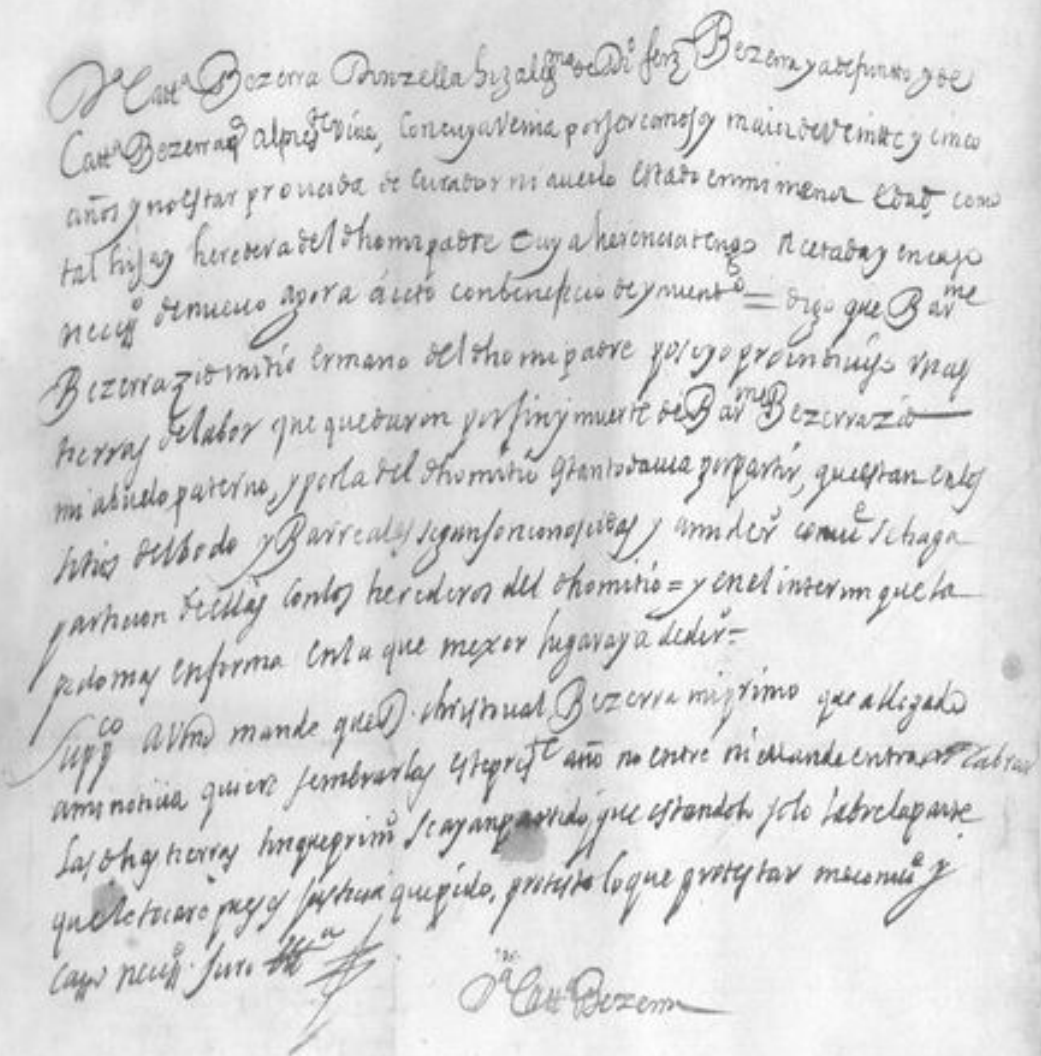 Dª Catt.ª Bezerra Donzella hixa leg.ma de Di.º ferz Bezerra ya defunto y de
Catt.ª Bezerra q al pres.te vive, con cuya venia por ser como soy maior de veintte y cinco
años y no estar proveida de curador ni averlo estado en mi menor edad, como
tal hija y heredera del dho mi padre cuya herencia tengo acetada y en caso
neces.º de nuevo agora áceto con beneficio de ynventº = digo que Bar.me
Bezerra zid mi tio ermano del dho mi padre poseyo proindiviso unas
tierras de labor que quedaron por fin y muerte de Bar.me Bezerra zid
mi abuelo paterno, y por la del dho mi tio q tanto davia por partir, que estan en los
sitios del bodo y Barreales segun son conosidas y a mi der.º comv.e se haga
particion de ellas con los herederos del dho mi tio = y en el interim que la
pido mas en forma en la que mexor lugar aya de der.º =
Supp.co a Vmd mande que D. christoual Bezerra mi primo que a llegado
a mi noticia quiere sembrarlas este pres.te año no entre ni mande entrar a labrar
las dhas tierras sin que prim.º se ayan partido, que estandolo solo labre la parte
que le tocare pues es justicia que pido, protesto lo que protestar me comv.e y
caso neces.º Juro ettª
Dª Catt.ª Bezerra